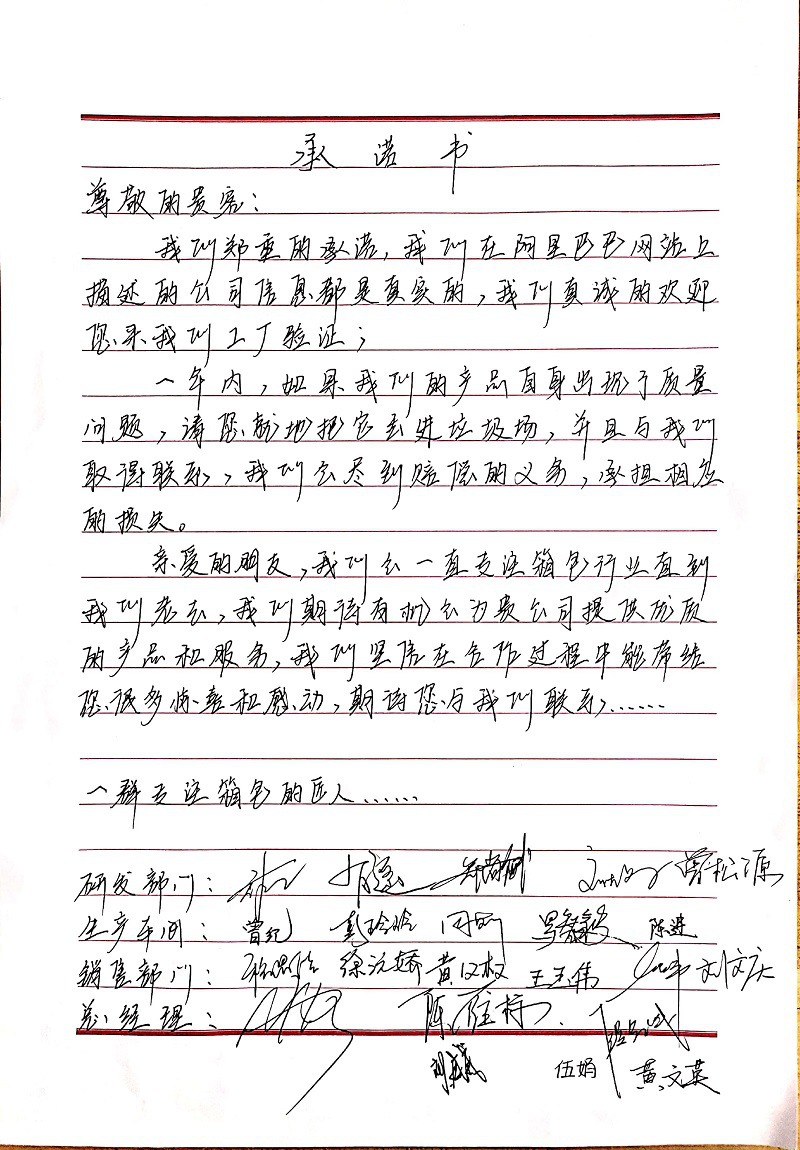 承诺书
尊敬的贵宾：
我们郑重的承诺，我们在阿里巴巴网站上
描述的公司信息都是真实的，我们真诚的欢迎
您来我们工厂验证；
一年内，如果我们的产品自身出现了质量
问题，请您就地把它丢进垃圾场，并且与我们
取得联系，我们会尽到赔偿的义务，承担相应
的损失。
亲爱的朋友，我们会一直专注箱包行业直到
我们老去，我们期待有机会为贵公司提供优质
的产品和服务，我们坚信在合作过程中能带给
您很多惊喜和感动，期待您与我们联系......
一群专注箱包的匠人......
研发部门： 曾松源
生产车间： 曾纪 陈进
销售部门： 徐沅娇 黄汉权 王玉伟 刘文庆
总经理：
伍娟 黄文英